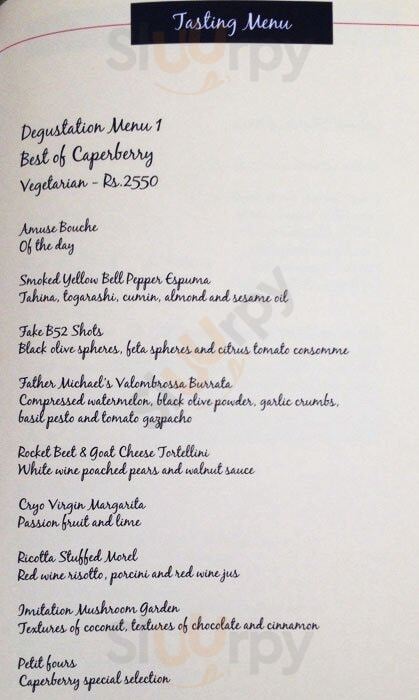 Tasting Menu
Degustation Menu 1
Best of Caperberry
Vegetarian - Rs.2550
Amuse Bouche
Of the day
Smoked Yellow Bell Pepper Espuma
Tahina, togarashi, cumin, almond and sesame oil
Fake B52 Shots
Black olive spheres, feta spheres and citrus tomato consomme
Father Michael's Valombrossa Burrata
Compressed watermelon, black olive powder, garlic crumbs,
basil pesto and tomato gazpacho
Rocket Beet & Goat Cheese Tortellini
White wine poached pears and walnut sauce
Cryo Virgin Margarita
Passion fruit and lime
Ricotta Stuffed Morel
Red wine risotto, porcini and red wine jus
Imitation Mushroom Garden
Textures of coconut, textures of chocolate and cinnamon
Petit fours
Caperberry special selection
Slurrpy